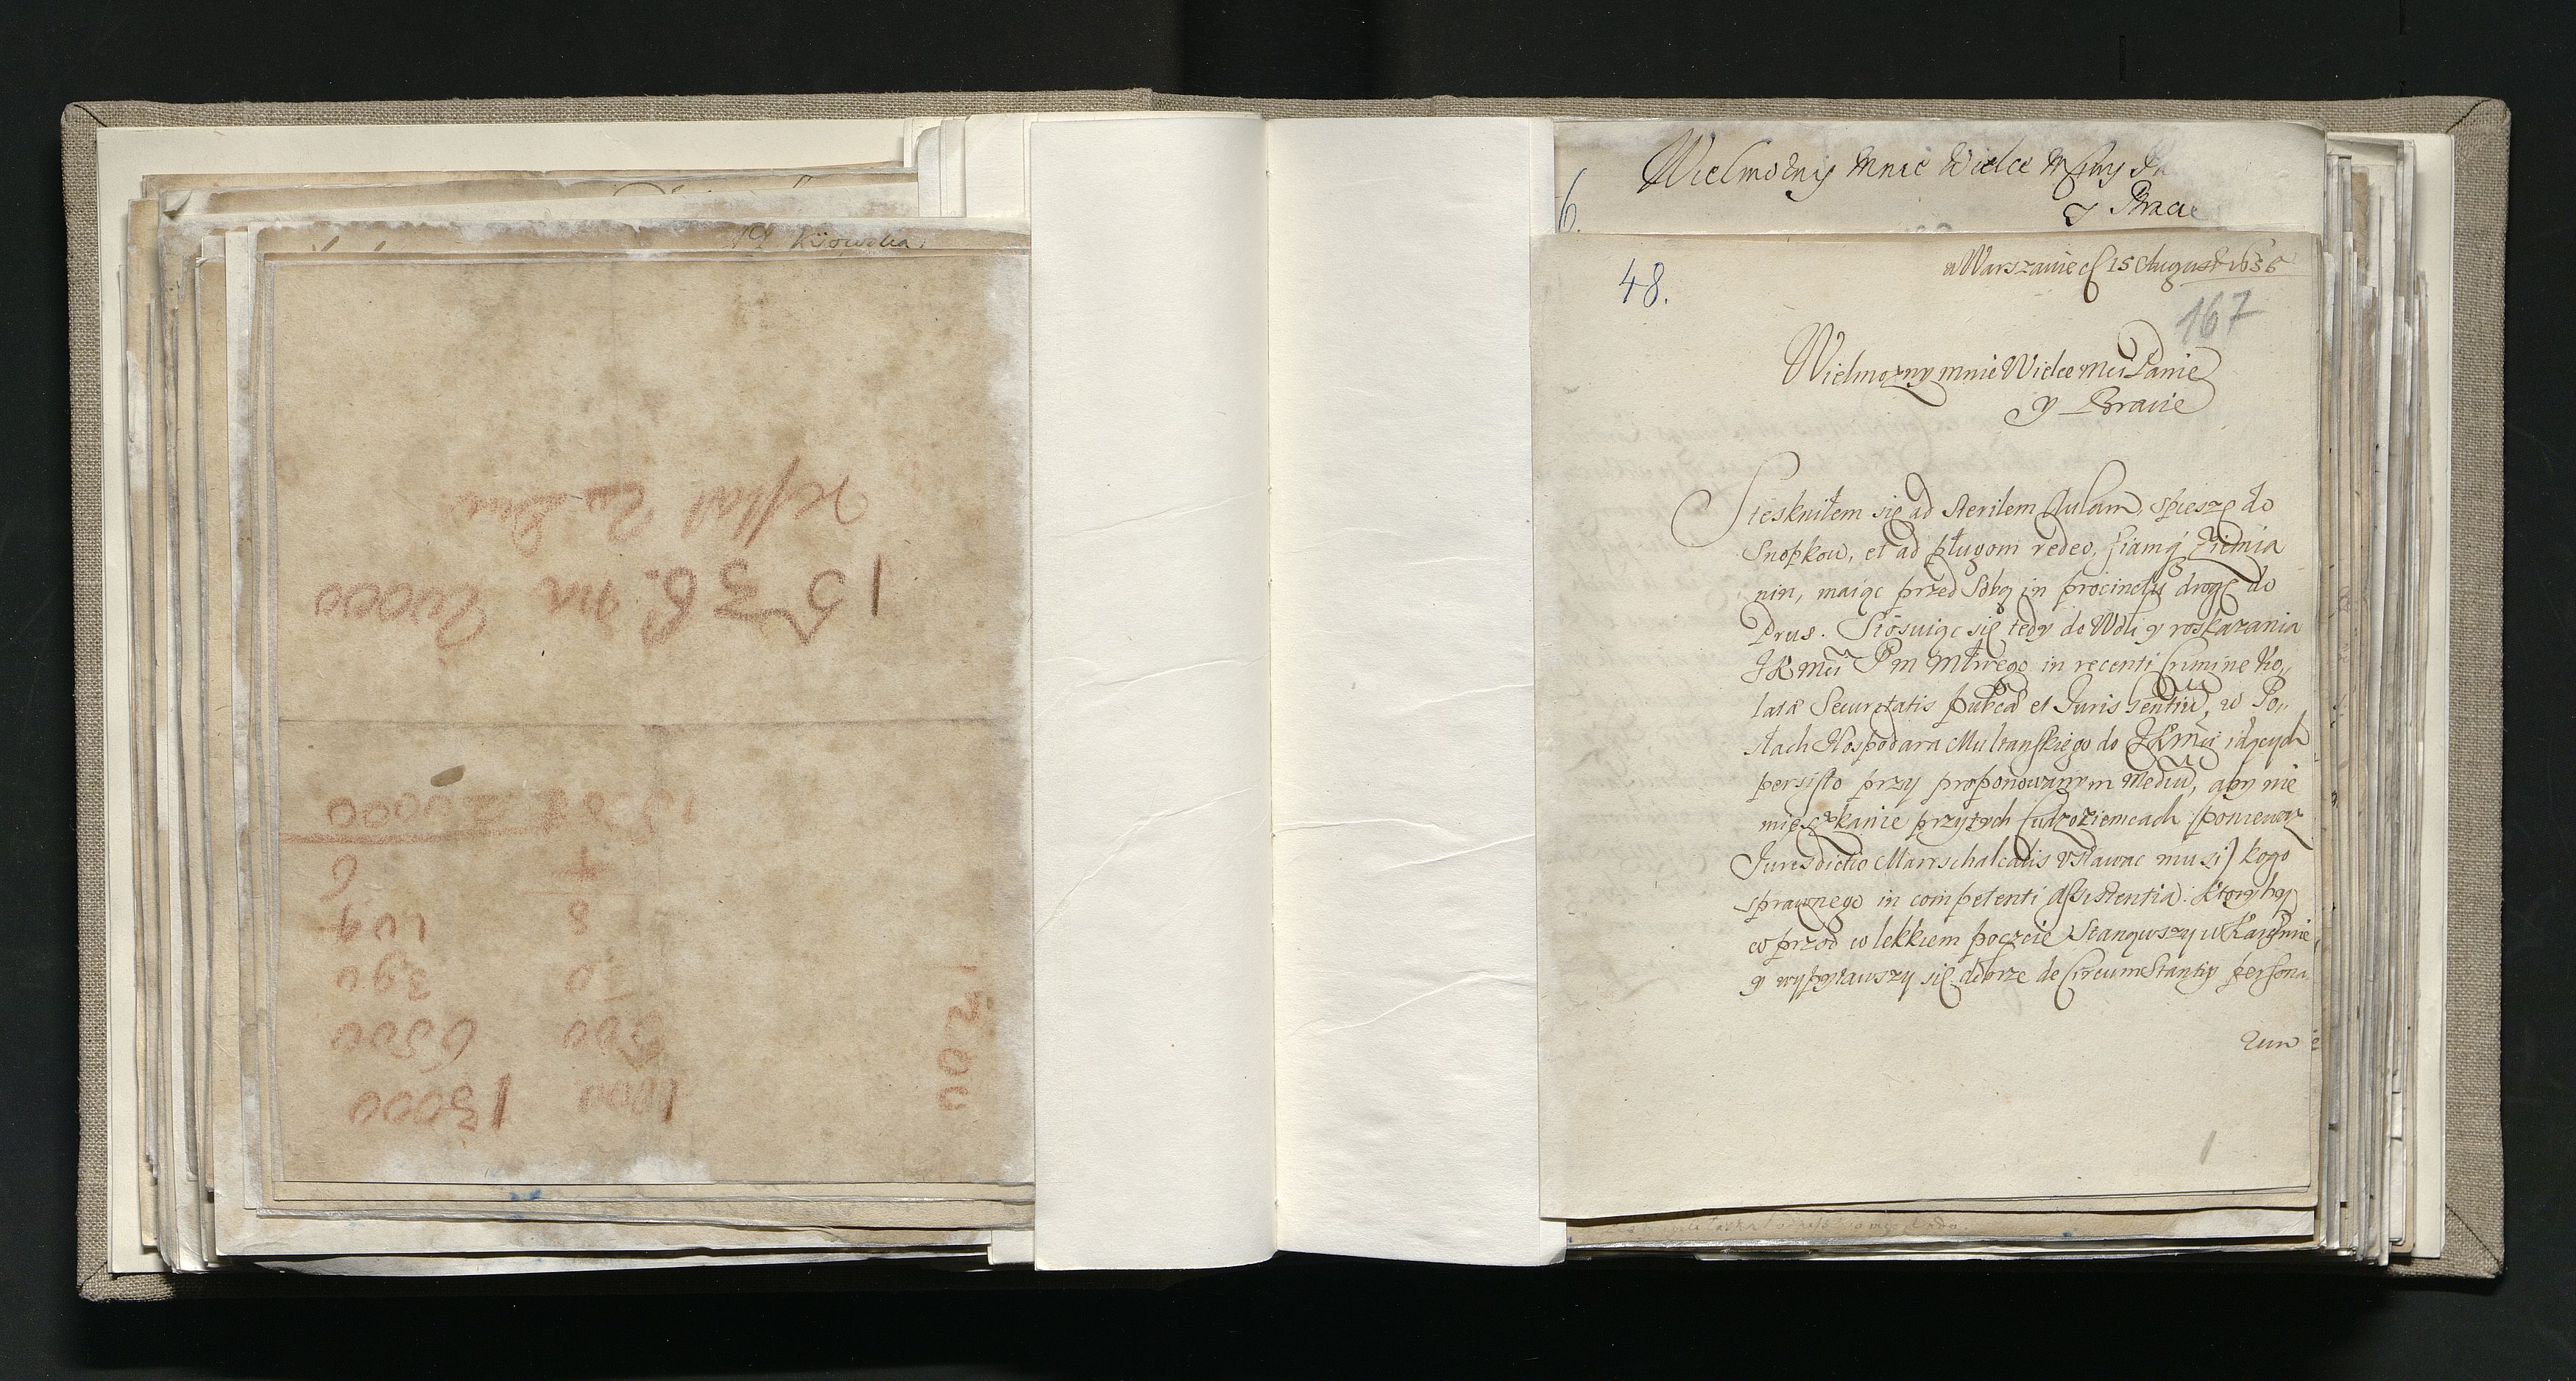 Kijowska
reſtat
1536 na
13000
1000
6500
500
390
30
104
8
6
4
20000
1200
Wielmożny Mnie Wielce Mśćiwy
Y Bracie
6.
48.
w Warszawie d 15 August 1636
167
Wielmozny mnie Wielce Mci Panie
y Bracie
Stęskniłem się ad sterilem Aulam, spieszę do
Snopkow, et ad pługom redeo, Ziemia
nin, maiąc przed Sobą in procinctu drogę do
Prus. Stosuiąc się tedy do Woli y roskazania
JKMci Pm Młwego in recenti Crimine vio,,
latæ Securitatis et Juris Gentiũ, w Po,,
słach Hospodara Multanſkiego do JKMci idących
persiſto przy proponowanym Mediũ, aby nie
mieszkanie przytych Cudzoziemcach /: ponieważ
Jurisdictio Marschalcalis ustawac musi :/ kogo
sprawnego in competenti Aſsistentia. Ktoryby
w przod w lekkiem poczcie Stanąwszy w
y wypytawszy się dobrze de Circumstantijs persona